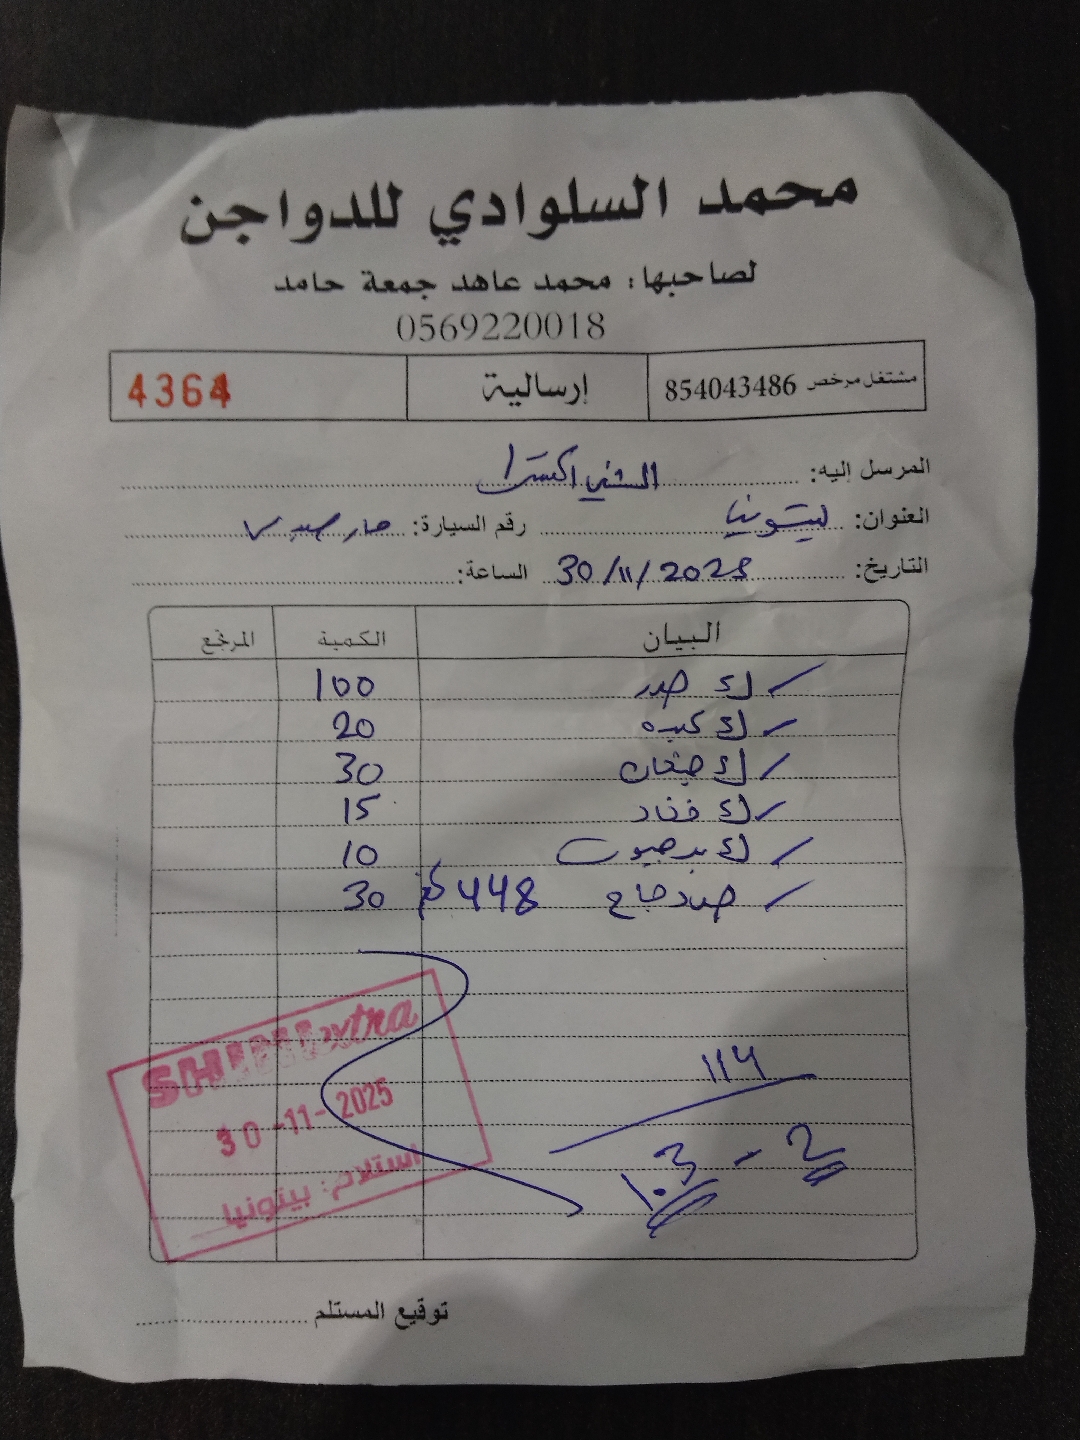 محمد السلوادي للدواجن
لصاحبها: محمد عاهد جمعة حامد
0569220018
مشتغل مرخص 854043486
إرسالية
4364
المرسل إليه: الشني اكسترا
العنوان: بيتونيا رقم السيارة:
التاريخ: 30/11/2025 الساعة:
البيان الكمية المرتجع
ك صدر 100
ك كبده 20
ك جنحان 30
ك فخاد 15
ك 10
دجاج 448 كغ 30
114
1.3 - 2
SHINI extra
30-11-2025
استلام: بيتونيا
توقيع المستلم